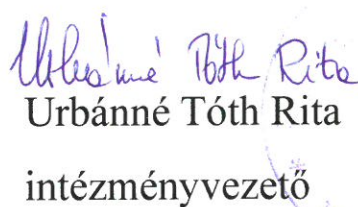 Urbánné Tóth Rita
Urbánné Tóth Rita
intézményvezető